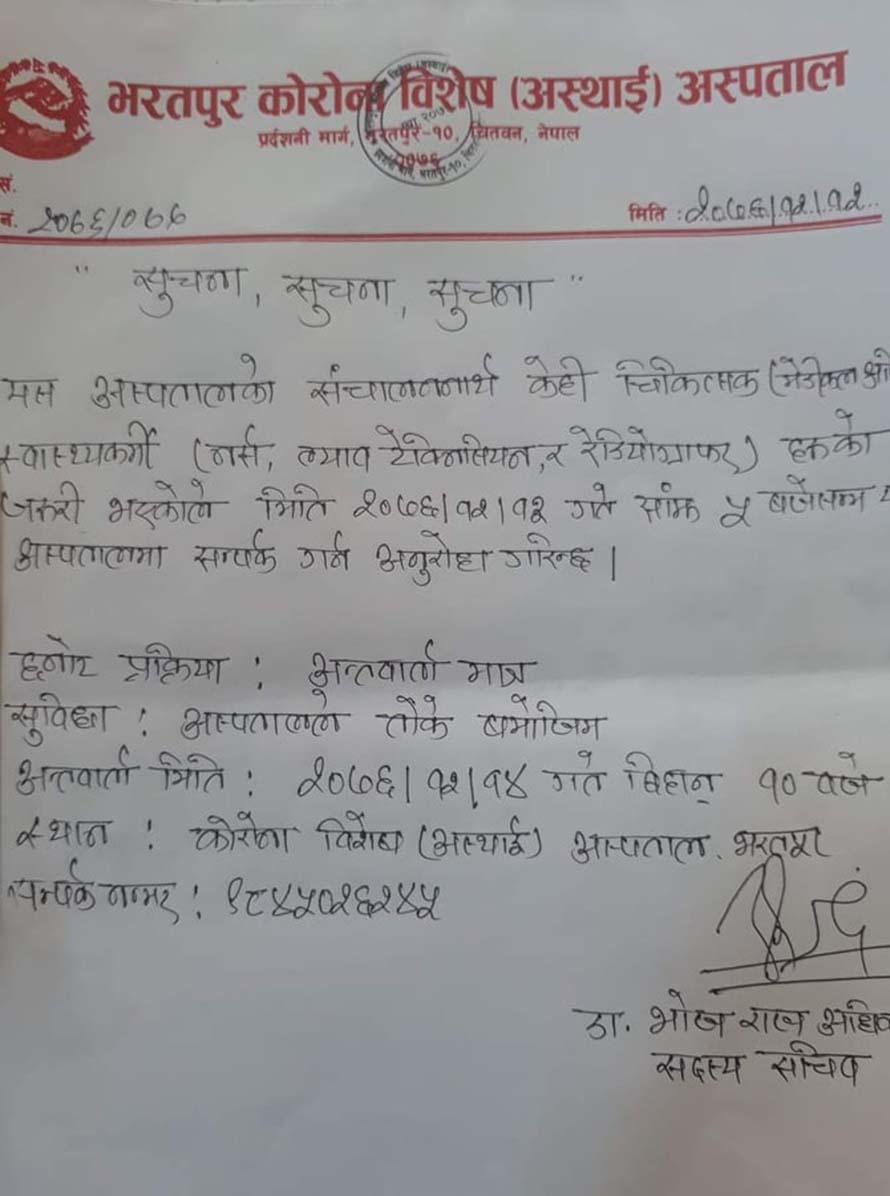 भरतपुर कोरोना विशेष (अस्थाई) अस्पताल
प्रर्दशनी मार्ग, भरतपुर-१०, चितवन, नेपाल
२०७६
सं.
नं. २०७६/०७७
मिति : २०७६/१२/१२
" सुचना, सुचना, सुचना "
यस अस्पतालको संचालनार्थ केही चिकित्सक (मेडीकल
स्वास्थ्यकर्मी (नर्स, ल्याव टेक्निसियन, र रेडियोग्राफर) हरुको
जरुरी भएकोले मिति २०७६/१२/१३ गते सांझ ५ बजेसम्म
अस्पतालमा सम्पर्क गर्न अनुरोध गरिन्छ |
छनोट प्रक्रिया : अन्तवार्ता मात्र
सुविधा : अस्पतालले तोके बमोजिम
अन्तवार्ता मिति : २०७६/१२/१४ गते बिहान् १० बजे
स्थान : कोरोना विशेष (अस्थाई) अस्पताल, भरतपुर
सम्पर्क नम्बर : ९८४५०२६२४५
डा. भोज राज
सदस्य सचिव